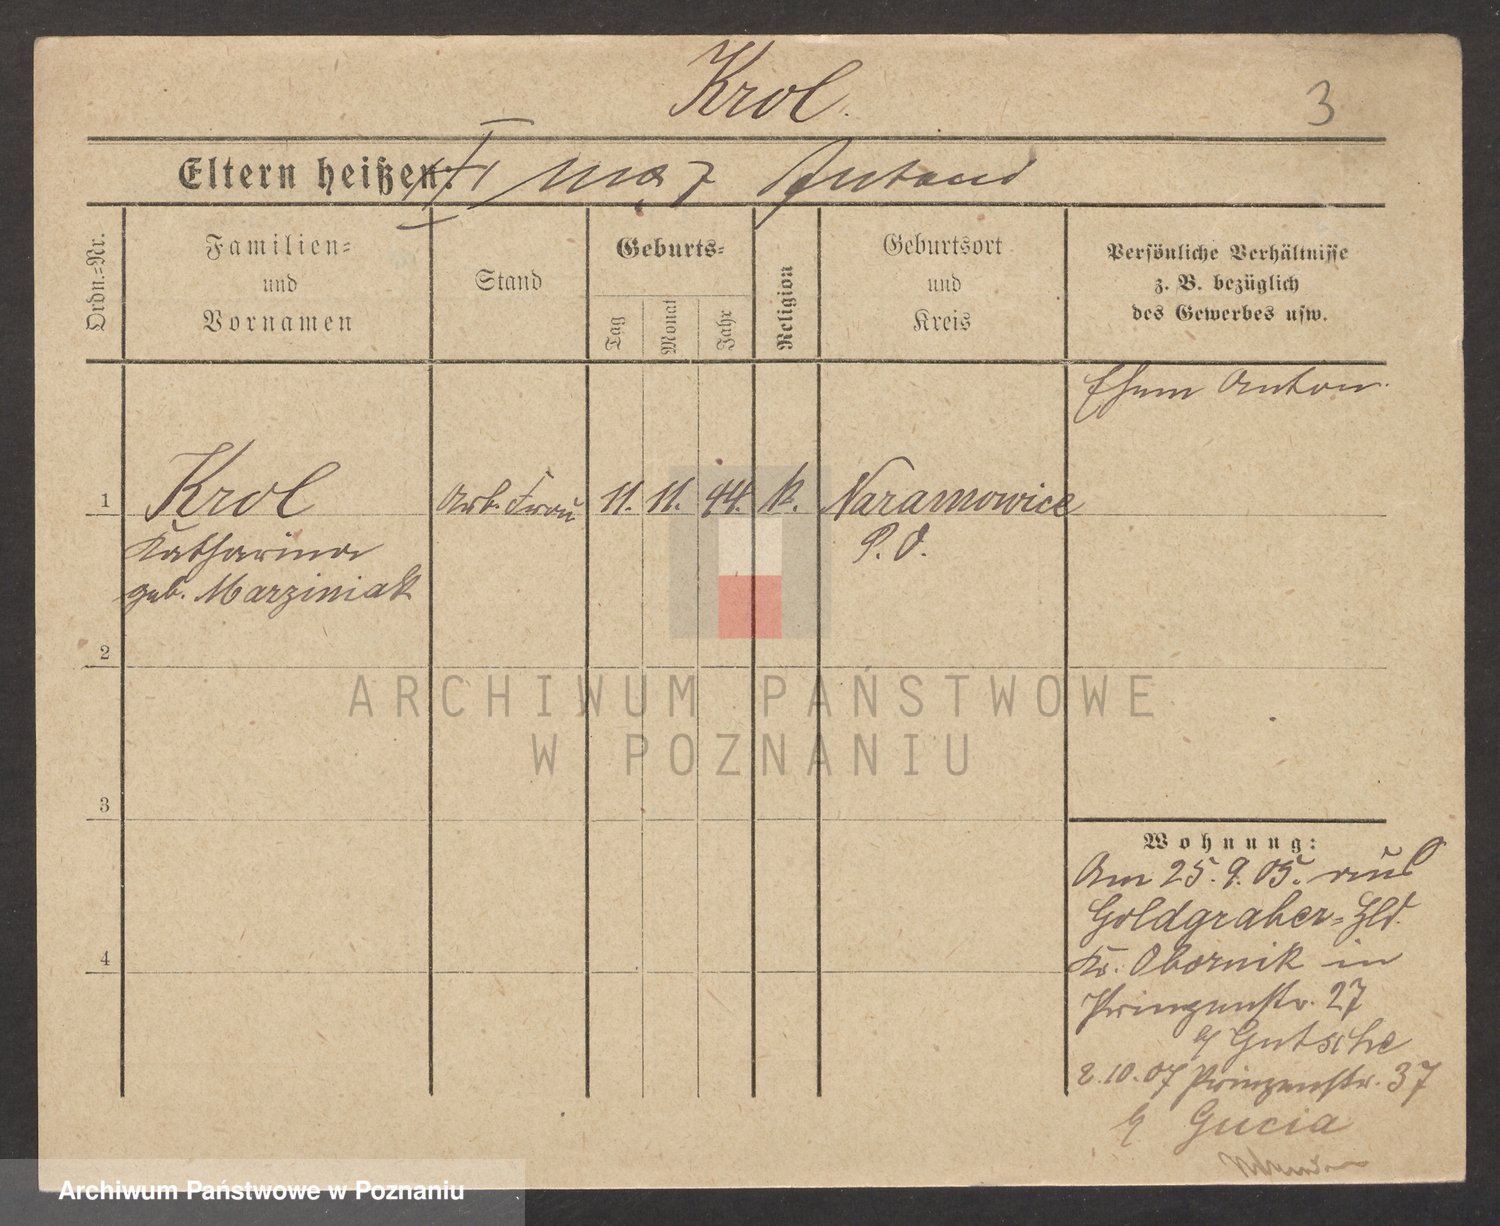 Krol.
3
Eltern heißen:
Ordn.=Nr.
Familien=
und
Vornamen
Stand
Geburts=
Tag
Monat
Jahr
Religion
Geburtsort
und
Kreis
Persönliche Verhältnisse
z. B. bezüglich
des Gewerbes usw.
Ehem Anton.
1 Krol Arb. Frau 11. 11. 44. k. Naramowice
Katharina P. O.
geb. Marziniak
2
3
4
Wohnung:
Am 25. 9. 05. aus
Goldgraber=Hld.
Kr. Obornik in
Prinzenstr. 27
b/ Gutsche
2.10.07 Prinzenstr. 37
b/ Gucia
ARCHIWUM PAŃSTWOWE
W POZNANIU
Archiwum Państwowe w Poznaniu